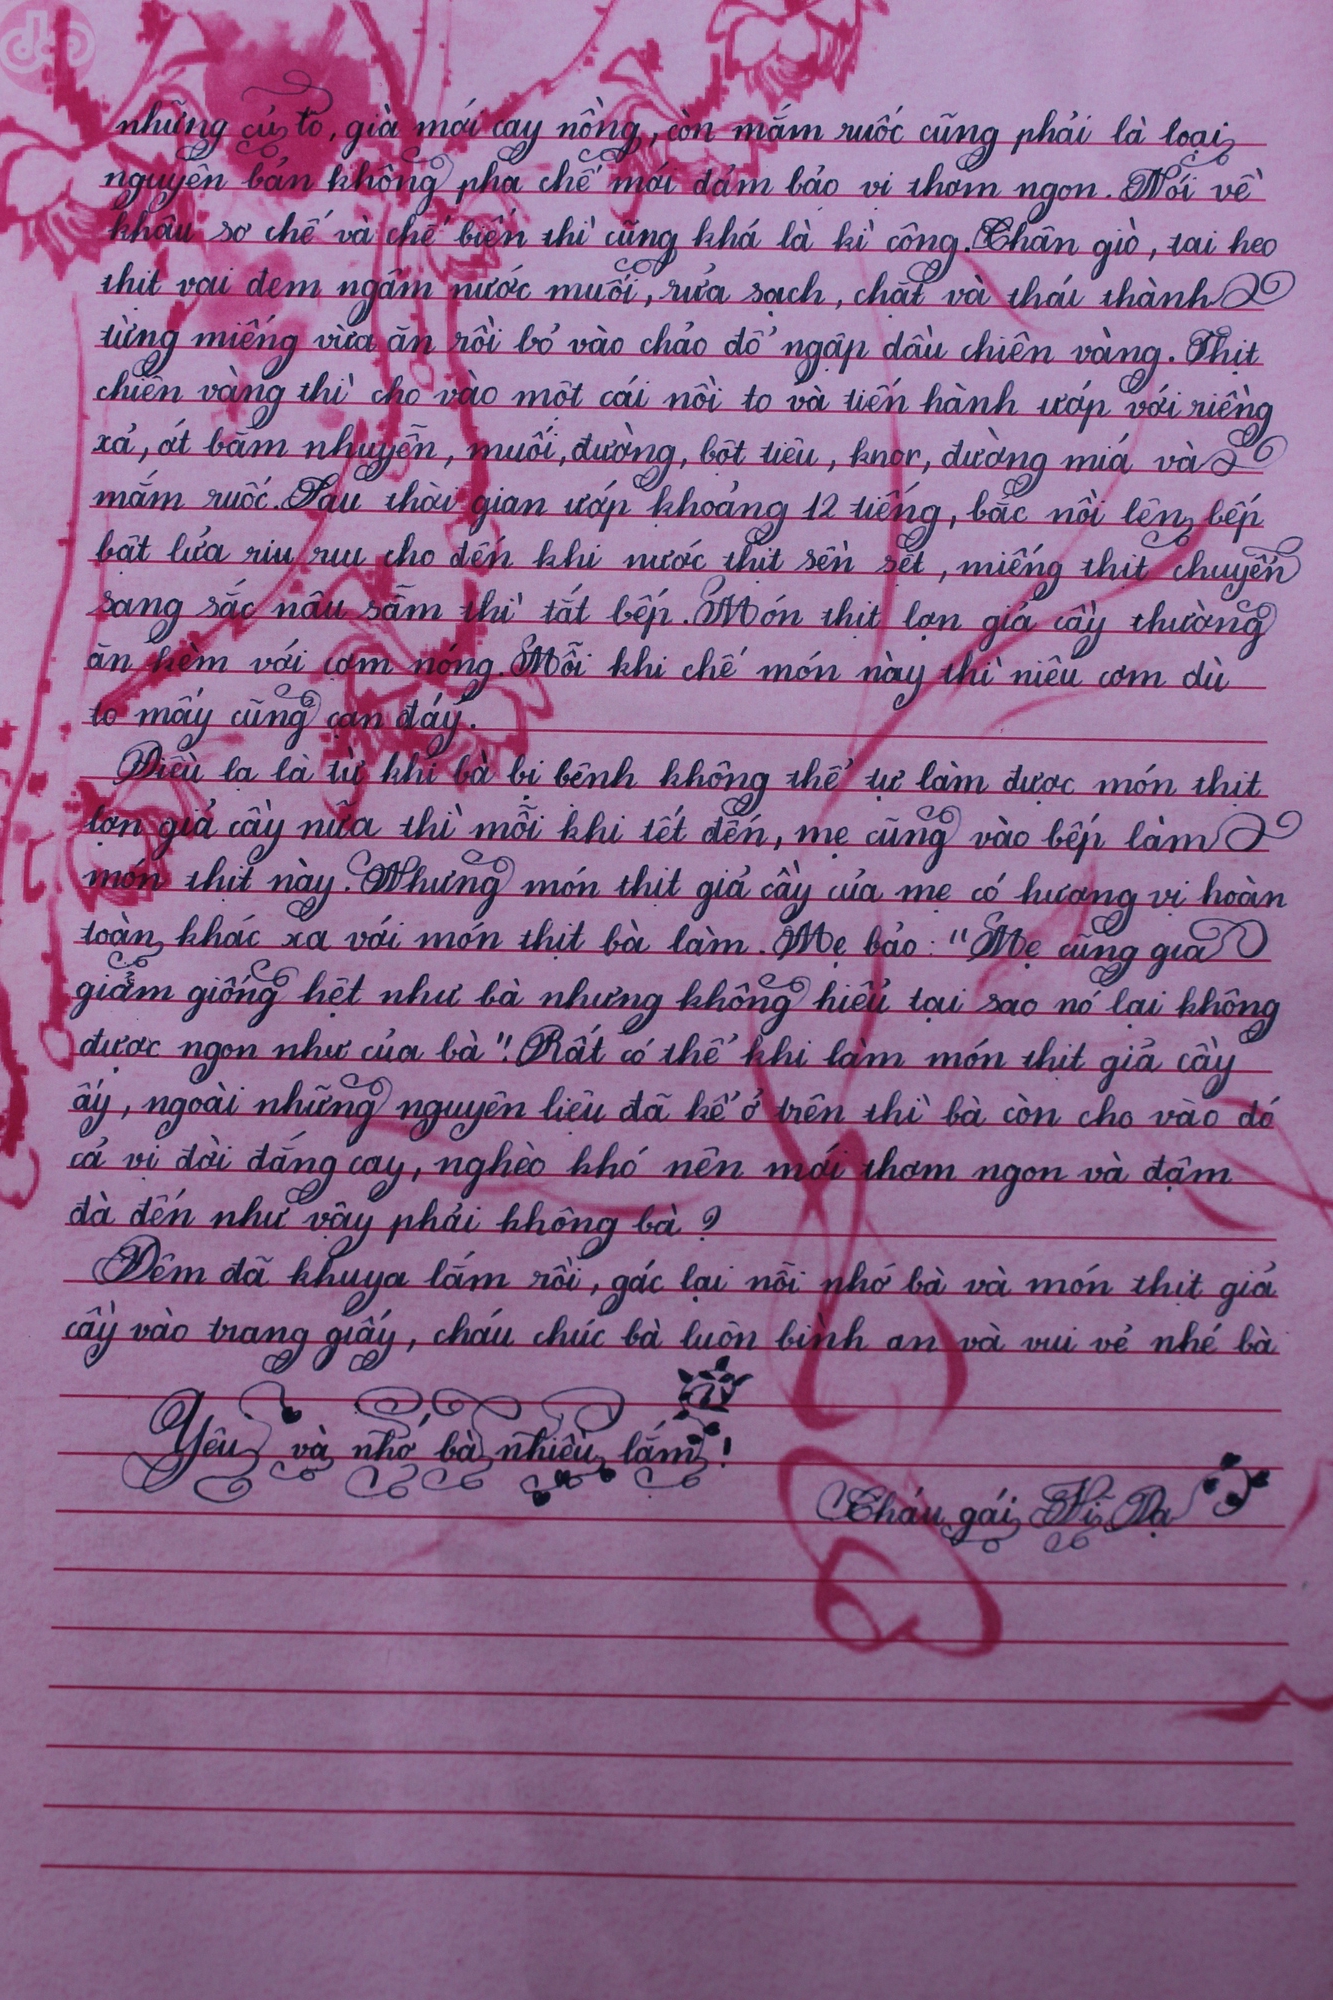 những củ to, già mới cay nồng, còn mắm ruốc cũng phải là loại
nguyên bản không pha chế mới đảm bảo vi thơm ngon. Nói về
khâu sơ chế và chế biến thì cũng khá là kì công. Chân giò, tai heo
thit vai đem ngâm nước muối, rửa sạch, chặt và thái thành
từng miếng vừa ăn rồi bỏ vào chảo đổ ngập dầu chiên vàng. Thịt
chiên vàng thì cho vào môt cái nồi to và tiến hành ướp với riềng
xả, ớt băm nhuyễn, muối, đường, bôt tiêu, knor, đường miá và
mắm ruốc. Sau thời gian ướp khoảng 12 tiếng, bắc nồi lên bếp
bât lửa riu riu cho đến khi nước thịt sền sệt, miếng thịt chuyển
sang sắc nâu sẫm thì tắt bếp. Món thịt lợn giả cầy thường
ăn kèm với cơm nóng. Mỗi khi chế món này thì niêu cơm dù
to mấy cũng cạn đáy.
Điều la là từ khi bà bị bênh không thể tự làm được món thịt
lợn giả cầy nữa thì mỗi khi tết đến, mẹ cũng vào bếp làm
món thịt này. Nhưng món thịt giả cầy của mẹ có hương vị hoàn
toàn khác xa với món thịt bà làm. Mẹ bảo: "Mẹ cũng gia
giảm giống hệt như bà nhưng không hiểu tại sao nó lại không
được ngon như của bà". Rất có thể khi làm món thịt giả cầy
ấy, ngoài những nguyên liệu đã kể ở trên thì bà còn cho vào đó
cả vị đời đắng cay, nghèo khó nên mới thơm ngon và đậm
đà đến như vậy phải không bà ?
Đêm đã khuya lắm rồi, gác lại nỗi nhớ bà và món thịt giả
cầy vào trang giấy, cháu chúc bà luôn bình an và vui vẻ nhé bà
Yêu và nhớ bà nhiều lắm !
Cháu gái Vĩ Dạ